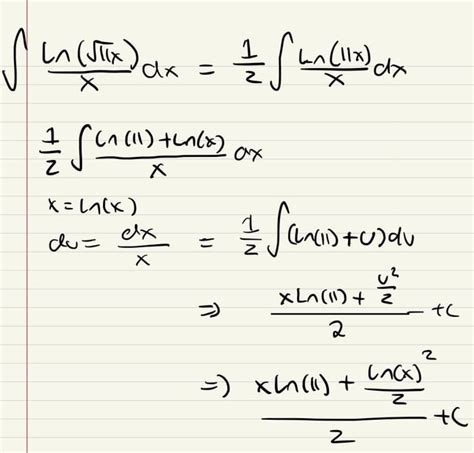 ∫ Ln(√11x)/x dx = 1/2 ∫ Ln(11x)/x dx
1/2 ∫ (Ln(11) + Ln(x))/x dx
x = Ln(x)
du = dx/x = 1/2 ∫ (Ln(11) + U) du
⇒ (xLn(11) + U²/2)/2 + C
=) (xLn(11) + Ln(x)²/2)/2 + C